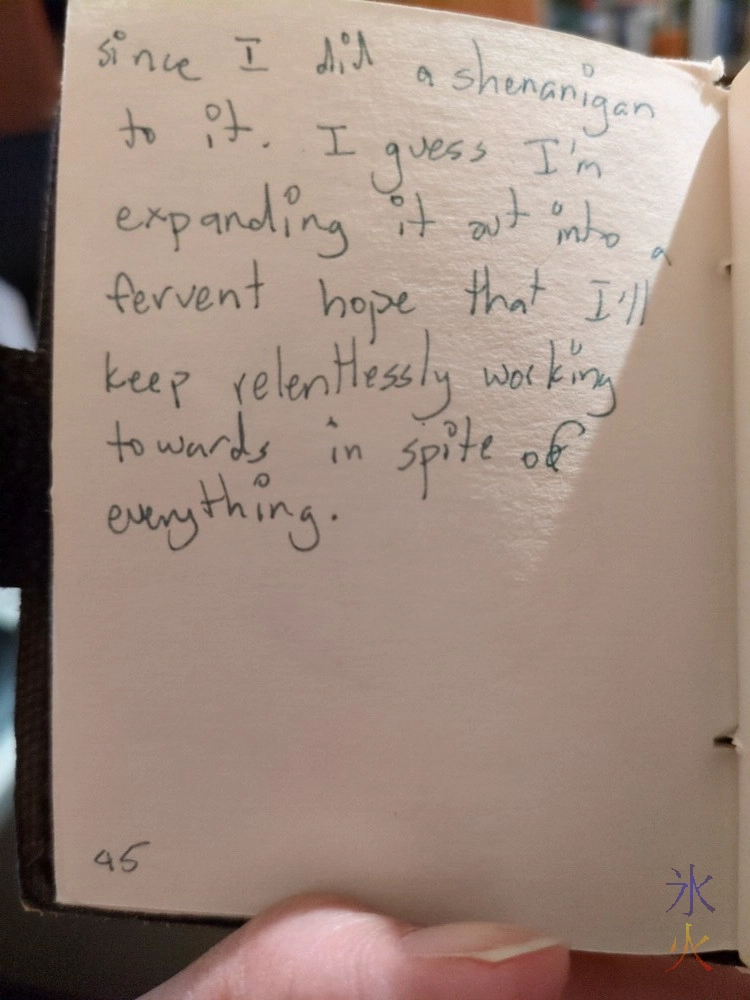 since I did a shenanigan
to it. I guess I'm
expanding it out into a
fervent hope that I'll
keep relentlessly working
towards in spite of
everything.
45
氷
火